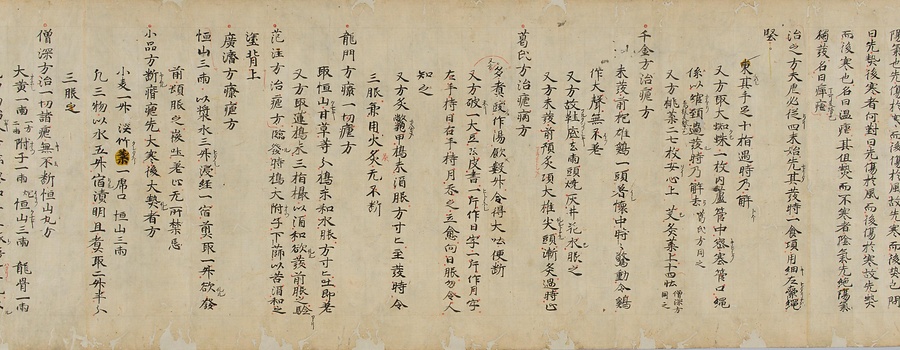 曰先熱後寒者何對曰先傷於風而後傷於寒故先熱
而後寒也名曰温瘧其但熱而不寒者陰氣先絶陽氣
獨發名曰癉瘧
治之方夫瘧必從四末始先其發時一食頃用細左索繩
堅束其手足之十指過時乃解
又方取大蜘蛛二枚内蘆管中密塞管口繩
係以繞頸過發時乃解去
又方桃葉二七枚安心上艾灸葉上十四壯
千金方治瘧方
未發前抱雄鷄一頭著懷中時々驚動令鷄
作大聲無不差
又方故鞋底去兩頭燒灰井花水服之
又方未發前預灸項大椎尖頭漸灸過時心
葛氏方治瘧病方
多煮豉作湯飲數升令得大吐便断
又方破一大豆去皮書一片作日字一片作月字
左手持日右手持月吞之立愈向日服勿令人
知之
又方炙鼈甲搗末酒服方寸匕至發時令
三服兼用火灸無不断
龍門方療一切瘧方
取恒山甘草等分搗末和水服方寸匕吐即差
又方取蓮搗末三指撮以酒和欲發前服之驗
范汪方治瘧方臨發時搗大附子下篩以苦酒和之
塗背上
廣濟方療瘧方
恒山三兩 以漿水三升浸經一宿煎取一升欲發
前頓服之後吐差心無所禁忌
小品方断瘧瘧先大寒後大熱者方
小麦一升 淡竹葉一席 恒山三兩
凡三物以水五升宿漬明旦煮取二升半分
三服之
僧深方治一切諸瘧無不断恒山丸方
大黄一兩 附子一兩 恒山三兩 龍骨一兩